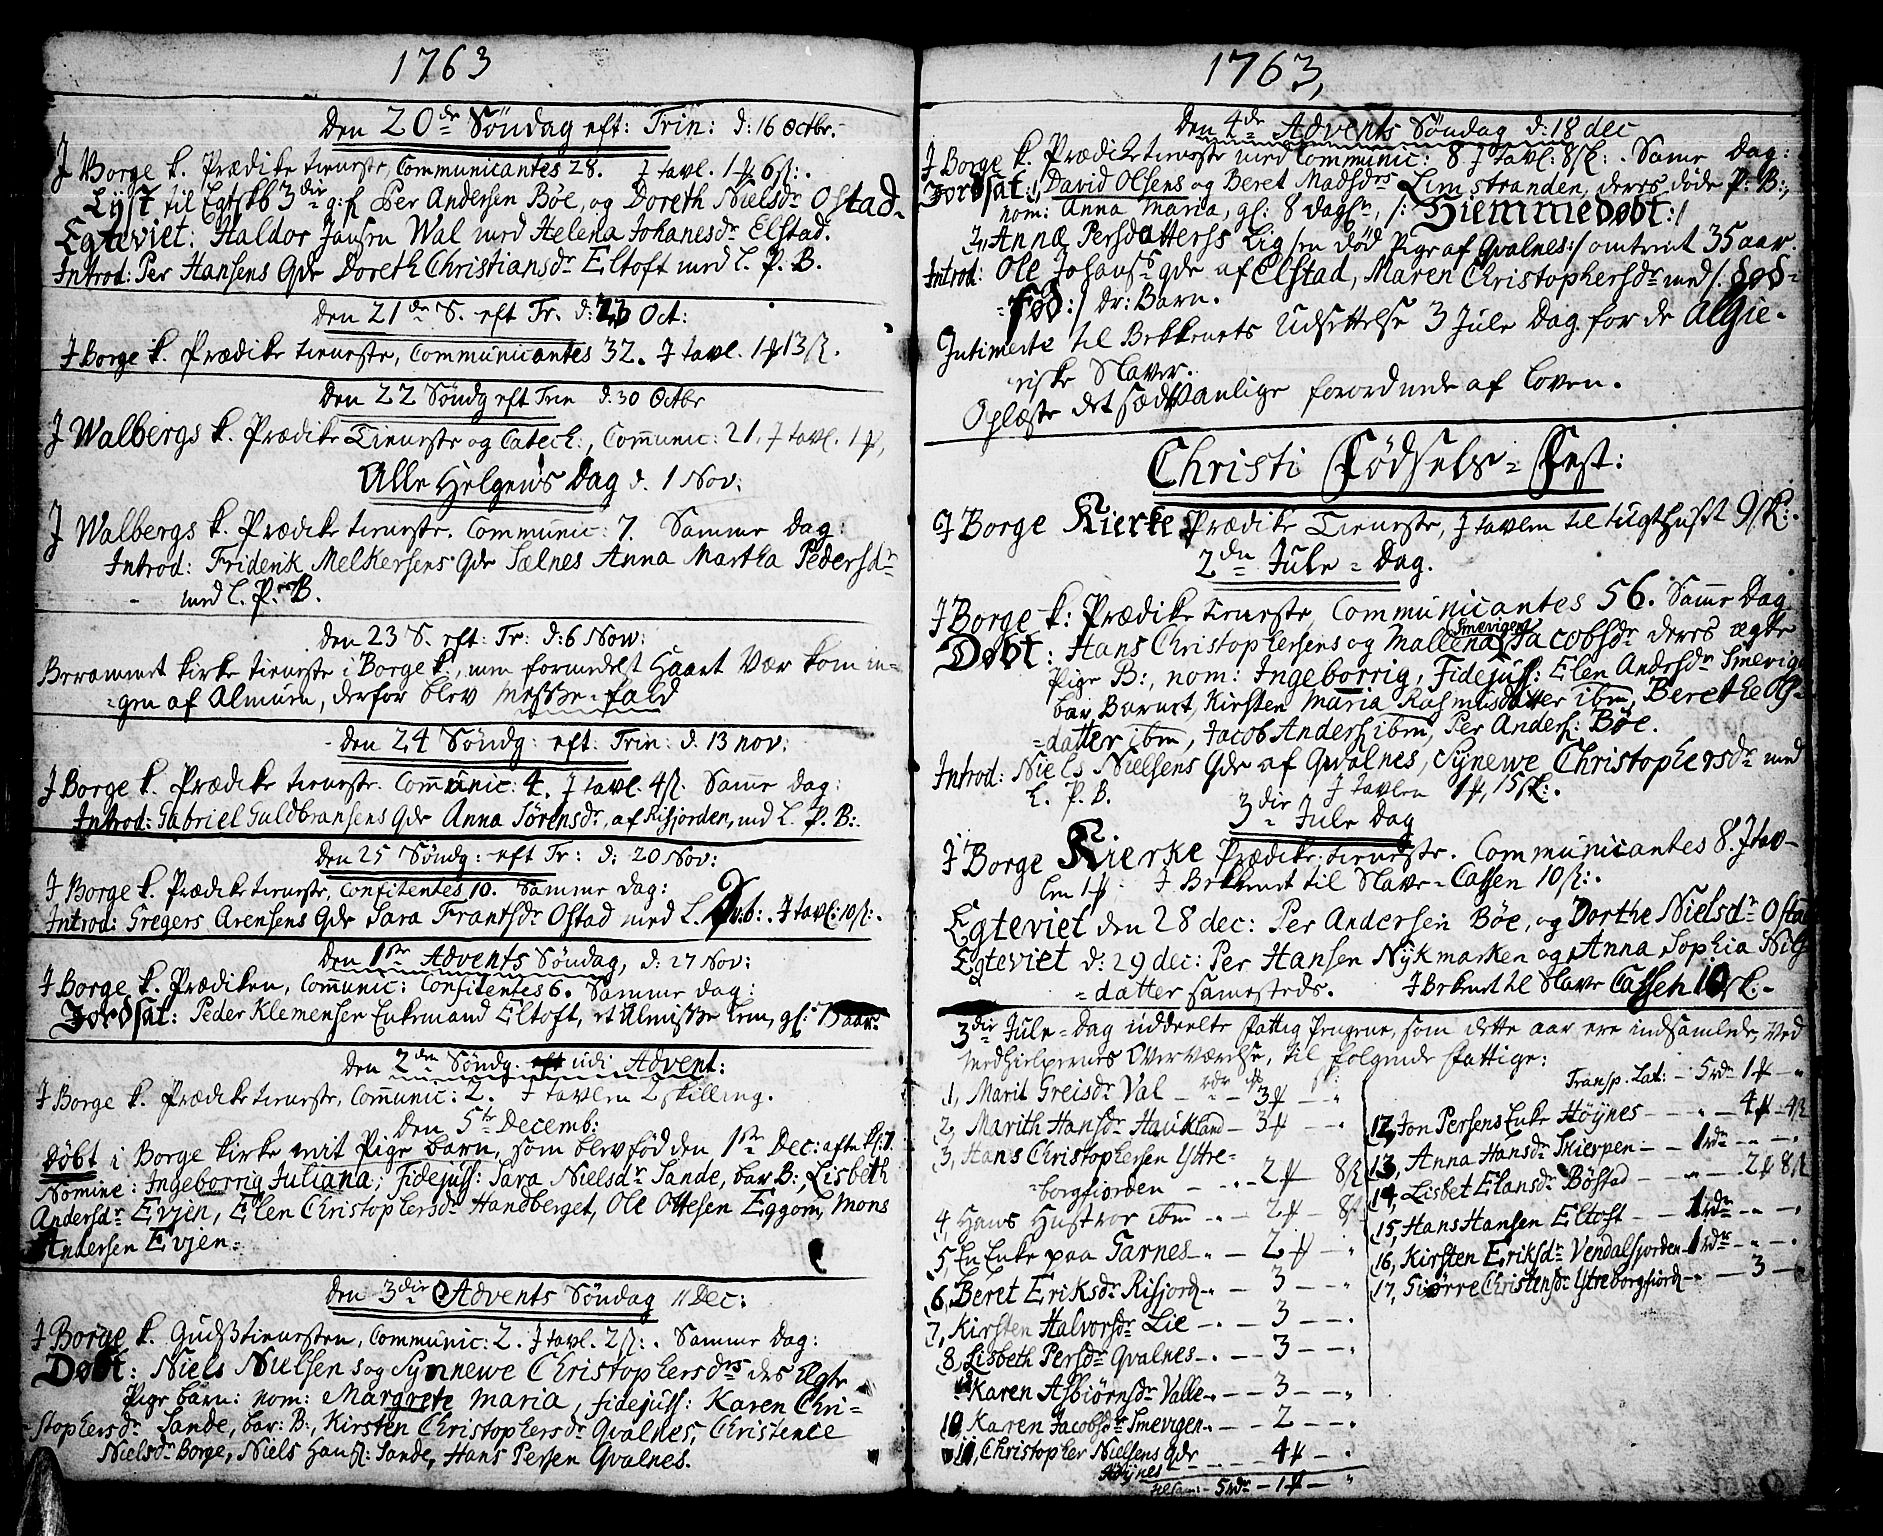 1763
Den 20de Söndag eft: Trin: d: 16 Octbr.
J Borge k. Prædike tieneste, Communicantes 28. J tavl. 1 # 6 sk:.
Lyst til Egtskb 3die g: f Per Andersen Böe, og Doreth Nielsdr Ostad.
Egteviet: Haldor Jansen Wal med Helena Johanesdr Elstad.
Introd: Per Hansens Qde Doreth Christiansdr Eltoft med l. P. B.
Den 21de S. eft Tr. d: 23 Oct:
J Borge k. Prædike tieneste, Communicantes 32. J tavl. 1 # 13 sk.
Den 22 Söndg eft Trin d. 30 Octbr
J Walbergs k. Prædike Tieneste og Catech:, Com̄unic: 21. J tavl. 1 #,
Alle Helgens Dag d. 1 Nov:
J Walbergs k. Prædike tieneste. Communic: 7. Samme Dag:
Introd: Friderik Melkersens Qde Sælnes Anna Martha Pedersdr
med l. P. B.
Den 23 S. eft: Tr: d: 6 Now:
Berammet kirke tieneste i Borge k., men formedelst haart Vær kom in-
-gen af Almuen, derfor blev Messe-fald
Den 24 Söndg: eft: Trin: d: 13 nov:
J Borge k. Prædike tieneste. Com̄unic: 4. J tavl. 4 sk. Samme dag:
Introd: Gabriel Guldbransens Qde Anna Sörensdr, af Risfjorden, md l. P. B:.
Den 25 Söndg: eft Tr: d: 20 Nov:
J Borge k. Prædike tieneste, Confitentes 10. Samme dag:
Introd: Gregers Arensens Qde Sara Frantsdr Ostad med l. D: b:. J tavl: 10 sk:.
Den 1ste Advents Söndag, d: 27 Nov:
J Borge k. Prædiken, Com̄unic: Confitentes 6. Samme dag:
Jordsat: Peder Klemensen Enkemand Eltoft, et Almisse Lem, gl: aar.
Den 2den Söndg. udi Advent:
J Borge k. Prædike tieneste, Com̄unic: 2. J tavlen 2 skilling.
Den 5te Decemb:
Döbt i Borge kirke mit Pige barn, som blev föd den 1ste Dec: aften kl: 7
Nomine: Ingeborrig Juliana; Fidejuss: Sara Nielsdr Sande, bar B:, Lisbeth
Andersdr Evjen, Elen Christophersdr Handberget, Ole Ottesen Eggom, Mons
Andersen Evjen.
Den 3die Advents Söndag 11 Dec:
J Borge k. Gudstienesten, Communic: 2. J tavl. 2 sk:. Samme dag:
Döbt: Niels Nielsens og Synnewe Christophersdrs des Ægte
Pige barn: nom: Margrete Maria, fidejuss: Karen Chri-
stophersdr Sande, bar: B:, Kirsten Christophersdr Qvalnes, Christence
Nielsdr Borge, Niels Hans: Sande, Hans Persen Qvalnes.
1763,
Den 4de Advents Söndag d: 18 dec
J Borge k. Prædiketieneste med Communic: 8 J tavl: 8 sk:. Same Dag:
Jordsat: David Olsens og Beret Madsdrs Limstranden, deres döde P: B:,
nom: Anna Maria, gl: 8 dage, /: Hiemmedöbt:/
Annæ Persdatters Lig /en död Pige af Qvalnes:/ omtrent 35 aar.
Introd: Ole Johans:s qde af Elstad, Maren Christophersdr med /: död-
-föd :/ dr: Barn.
Intimerte til Bekkenets Udsettelse 3 Jule Dag for de Algie-
riske Slaver.
Oplæste det sædvanlige forordnede af Loven.
Christi Födsels-Fest:
J Borge Kierke Prædike Tieneste, J tavlen til tugthuset 9 sk:.
2den Jule-Dag.
J Borge k: Prædike tieneste Communicantes 56. Samme Dag
Döbt: Hans Christophersens og Mallena Smevigens Jacobsdr deres ægte
Pige B:, nom: Ingeborrig, Fidejuss: Elen Andersdr Smevig
bar Barnet, Kirsten Maria Rasmusdatter ibm, Berethe Ols-
-datter ibm, Jacob Anders: ibm, Per Anders: Böe.
Introd: Niels Nielsens Qde af Qvalnes, Synewe Christophersdr med
L. P. B. J tavlen 1 #, 15 sk:.
3die Jule Dag
J Borge Kierke Prædike tieneste. Communicantes 8. J tav-
len 1 #: J Bekkenet til Slave-Cassen 10 sk:.
Egteviet den 28 dec: Per Andersen Böe, og Dorthe Nielsdr Ostad
Egteviet d: 29 dec: Per Hansen Nykmarken og Anna Sophia Nils
-datter samesteds. J Bekenet til Slave Cassen 10 sk:-
3die Jule-Dag uddeelte fattig Pengene, som dette aar ere indsamlede, Ved
Medhielpernes Overværelse, til folgende fattige:
1, Marit Greisdr Val - 3 #
2, Marith Hansdr Haukland - 3 # - "
3, Hans Christophersen Yttre-
-borgfiorden - 2 # - 8 sk
4, Hans Hustroe ibm - 2 # - 8 sk
5, En Enke paa Tarnes - 2 # - "
6, Beret Eriksdr Risjord - 3 - - "
7, Kirsten Halvorsdr Lie - 3 - - "
8, Lisbeth Persdr Qvalnes - 3 - - "
Karen Asbiörnsdr Valle - 3 - - "
10, Karen Jacobsdr Smevigen - 2 - - "
11, Christopher Nielsens Qde
Höynes - 4 # - "
5 rdr - 1 # - "
Transp. Lat: - 5 rdr 1 # - "
12, Jon Persens Enke Höynes - - 4 # - 4 sk
13, Anna Hansdr Skierpen - 1 rdr - - "
14, Lisbet Elansdr Böstad - " - 2 # 8 sk
15, Hans Hansen Eltoft - 1 rdr - - "
16, Kirsten Eriksdr Vendalsjorden - 1 rdr - - "
17, Giörre Christensdr Ytreborgfiord - 3 - "